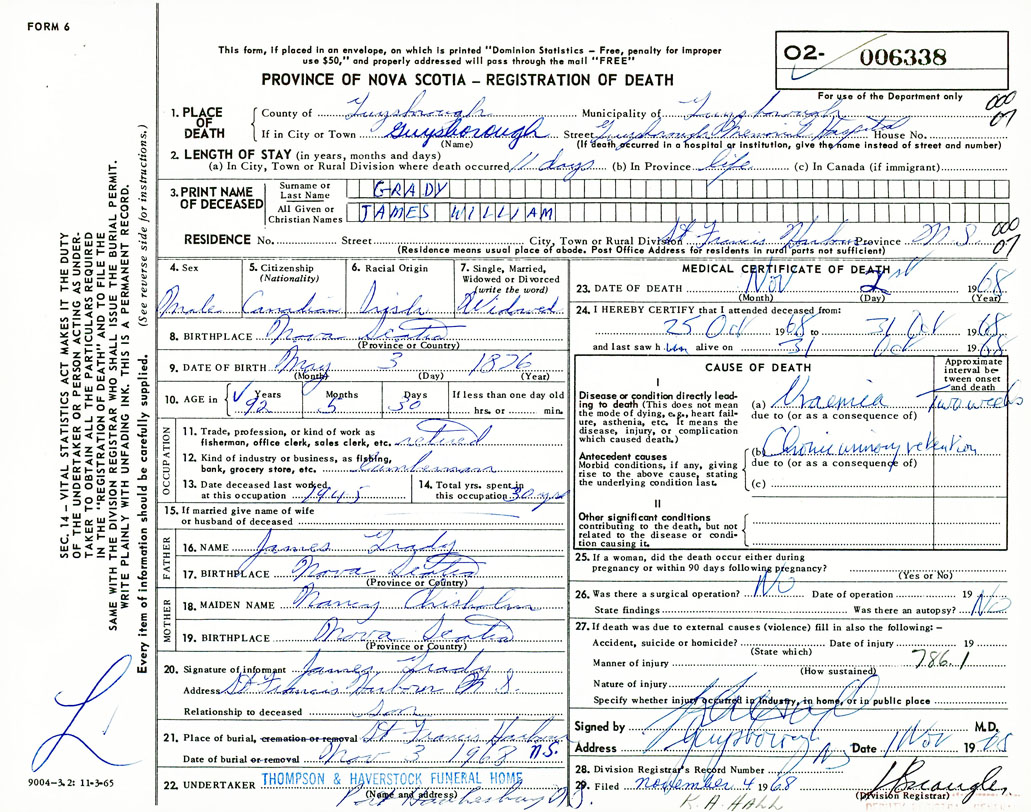 FORM 6
This form, if placed in an envelope, on which is printed "Dominion Statistics – Free, penalty for improper
use $50," and properly addressed will pass through the mail "FREE"
PROVINCE OF NOVA SCOTIA – REGISTRATION OF DEATH
02- 006338
For use of the Department only
000
07
1. PLACE OF DEATH
County of Guysborough Municipality of Guysborough
If in City or Town Guysborough Street Guysborough Memorial Hospital House No.
(Name) (If death occurred in a hospital or institution, give the name instead of street and number)
2. LENGTH OF STAY (in years, months and days)
(a) In City, Town or Rural Division where death occurred 11 days (b) In Province life (c) In Canada (if immigrant)
3. PRINT NAME OF DECEASED
Surname or Last Name GRADY
All Given or Christian Names JAMES WILLIAM
RESIDENCE No. Street City, Town or Rural Division St Francis Harbour Province N S
000
07
(Residence means usual place of abode. Post Office Address for residents in rural parts not sufficient)
4. Sex Male
5. Citizenship (Nationality) Canadian
6. Racial Origin Irish
7. Single, Married, Widowed or Divorced (write the word) Widowed
8. BIRTHPLACE Nova Scotia
(Province or Country)
9. DATE OF BIRTH May 3 1876
(Month) (Day) (Year)
10. AGE in Years 92 Months 5 Days 30 If less than one day old hrs. or min.
OCCUPATION
11. Trade, profession, or kind of work as fisherman, office clerk, sales clerk, etc. retired
12. Kind of industry or business, as fishing, bank, grocery store, etc. Lumberman
13. Date deceased last worked at this occupation 1945
14. Total yrs. spent in this occupation 30 yrs
15. If married give name of wife or husband of deceased
FATHER
16. NAME James Grady
17. BIRTHPLACE Nova Scotia
(Province or Country)
MOTHER
18. MAIDEN NAME Nancy Chisholm
19. BIRTHPLACE Nova Scotia
(Province or Country)
20. Signature of informant James Grady
Address St Francis Harbour N. S.
Relationship to deceased son
21. Place of burial, cremation or removal St Francis Harbour N.S.
Date of burial or removal Nov 3 1968
22. UNDERTAKER THOMPSON & HAVERSTOCK FUNERAL HOME
(Name and address)
Port Hawkesbury N.S.
MEDICAL CERTIFICATE OF DEATH
23. DATE OF DEATH Nov 1st 1968
(Month) (Day) (Year)
24. I HEREBY CERTIFY that I attended deceased from:
25 Oct 1968 to 31 Oct 1968
and last saw him alive on 31 Oct 1968
CAUSE OF DEATH
Approximate interval between onset and death
I
Disease or condition directly leading to death (This does not mean the mode of dying, e.g., heart failure, asthenia, etc. It means the disease, injury, or complication which caused death.)
(a) Uraemia Two weeks
due to (or as a consequence of)
Antecedent causes
Morbid conditions, if any, giving rise to the above cause, stating the underlying condition last.
(b) Chronic urinary retention
due to (or as a consequence of)
(c)
II
Other significant conditions contributing to the death, but not related to the disease or condition causing it.
25. If a woman, did the death occur either during
pregnancy or within 90 days following pregnancy?
(Yes or No)
26. Was there a surgical operation? No Date of operation 19
State findings Was there an autopsy? No
27. If death was due to external causes (violence) fill in also the following: –
Accident, suicide or homicide? Date of injury 19
(State which)
Manner of injury 786.1
(How sustained)
Nature of injury
Specify whether injury occurred in industry, in home, or in public place
Signed by M.D.
Address Guysborough NS Date 1 Nov 1968
28. Division Registrar's Record Number
29. Filed November 4 1968
(Division Registrar)
K. A. HALL
SEC. 14 – VITAL STATISTICS ACT MAKES IT THE DUTY
OF THE UNDERTAKER OR PERSON ACTING AS UNDER-
TAKER TO OBTAIN ALL THE PARTICULARS REQUIRED
IN THE "REGISTRATION OF DEATH" AND TO FILE THE
SAME WITH THE DIVISION REGISTRAR WHO SHALL ISSUE THE BURIAL PERMIT.
WRITE PLAINLY WITH UNFADING INK. THIS IS A PERMANENT RECORD.
Every item of information should be carefully supplied. (See reverse side for instructions.)
9004-3.2: 11-3-65